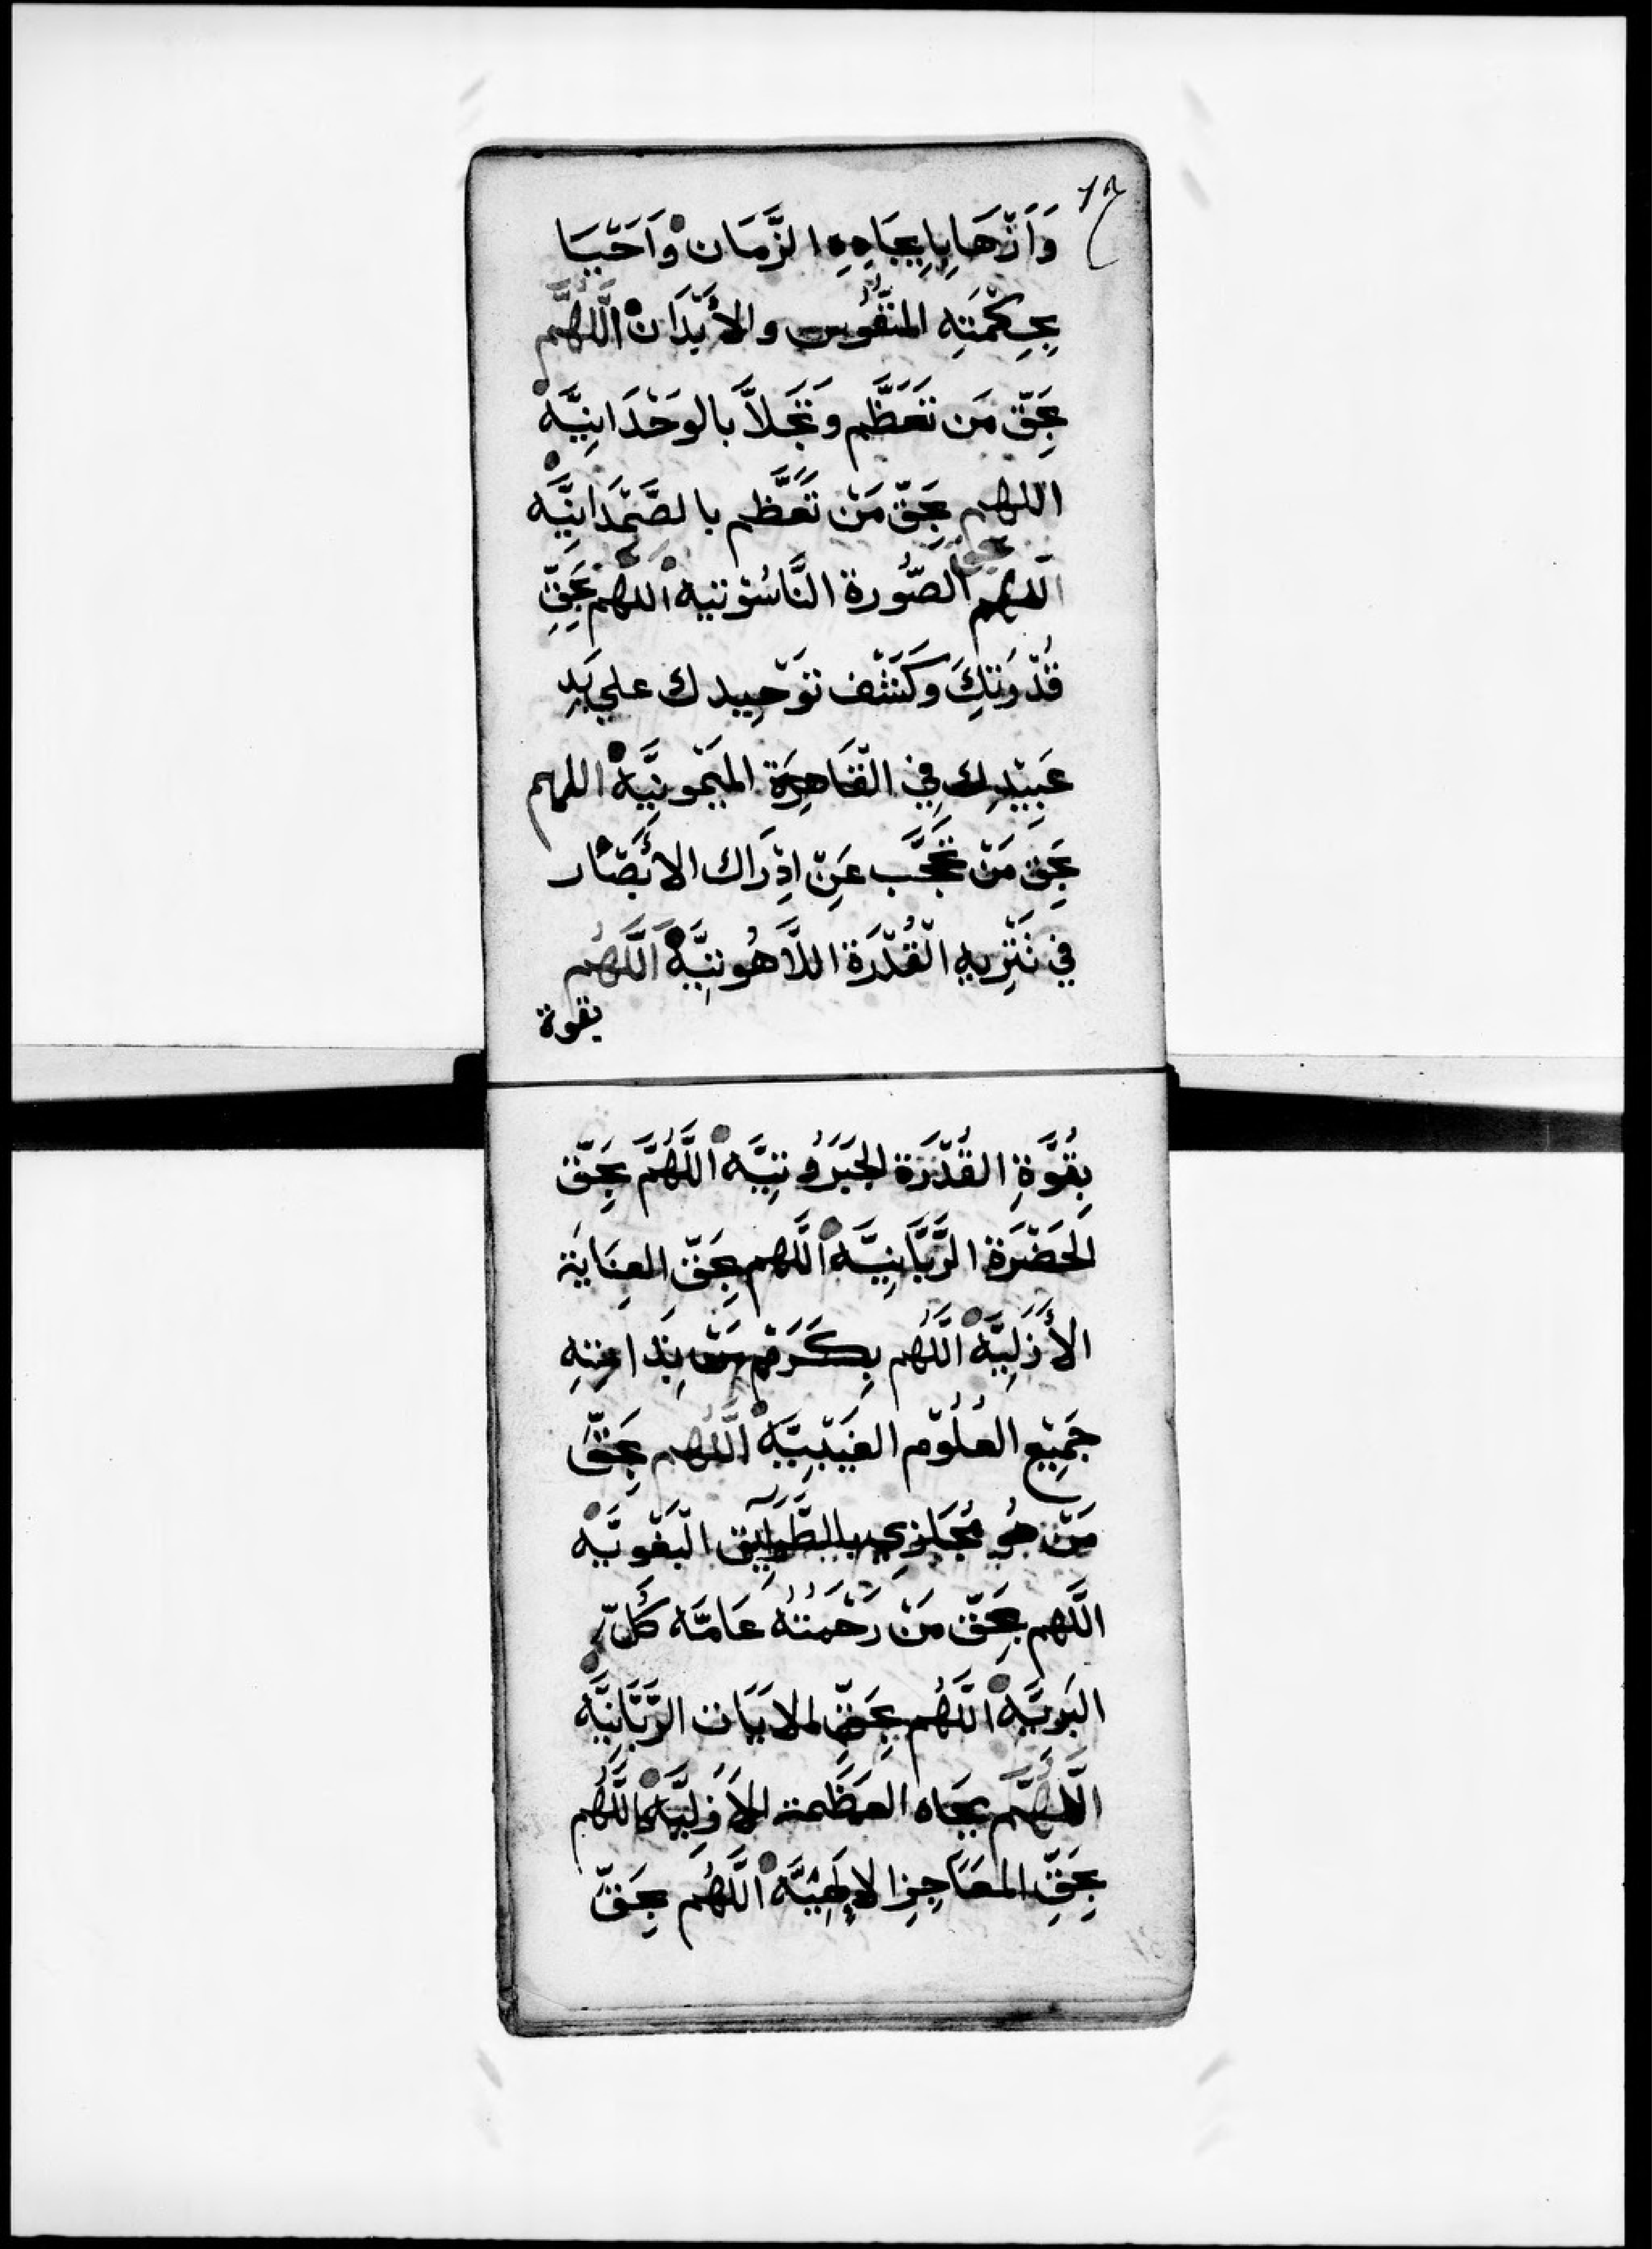 وَاَزْهَا بِايجَاهِهِ الزَّمَان وَاَحْيَيَا
بِحِكْمَتِه النُّفُوس والأَبْدَان اَللَّهُمَّ
بِحَقّ مَن تَعَظَّم وَتَجَلاَّ بالوَحْدَانِيَّه
اللهم بِحَقّ مَنْ تَعَظَّم بالصَّمْدَانِيَّه
اللهم بحق الصُّورة النَّاسُوْتيه اللهم بِحَقِّ
قُدْرَتِكَ وَكَشْف تَوْحِيدك علي يَدِ
عَبِيْدِك فِي القَاهِرَة المَيْمونِيَّه اللهم
بِحَق مَنْ تَحَجَّب عَنْ اِدْرَاك الابْصَار
في تَنْزِيهِ القُدْرَة اللاَّهُوتِيَّه اَللَّهُم
بقوة
بِقُوَّةِ القُدْرَة الجَبَرُوتِيَّه اَللَّهُمَّ بِحَقّ
الحَضْرَة الرَّبَّانِيَّه اَللَّهم بِحَقّ العِنَايَة
الأَزَلِيَّه اَللَّهُم بِكَرَم مَنْ
جَمِيْع العُلُوْم الغَيْبِيَّه اَللَّهُم بِحَقّ
مَنْ هُو مُجَازِي بالطَّرَآيِق
اللَّهم بِحَقّ مَنْ رَحْمَتُهُ عَامَّه كُلّ
البَرِيَّه اَللَّهُم بِحَقِّ الايَات الرَّبَّانِيَّه
اللَّهُمَّ بِجَاه العَظَمة الأَزَلِيَّه اللَّهُم
بِحَقِّ المعَاجِز الالَهِيَّه اَللَّهُم بِحَقّ